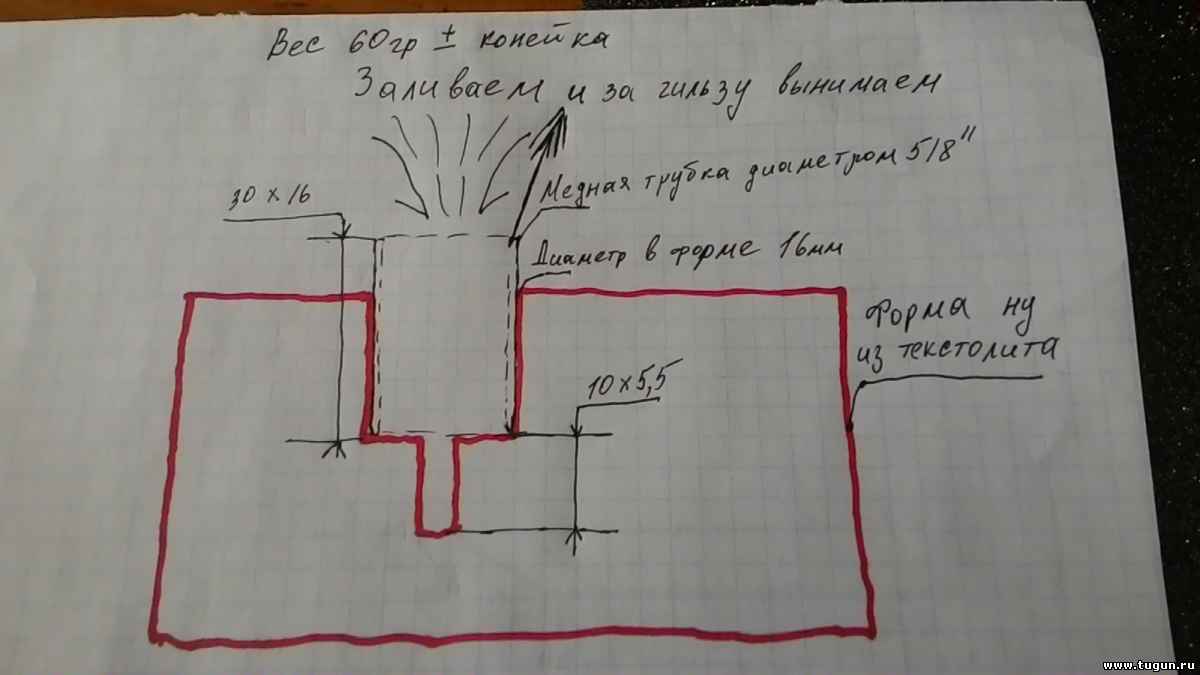 Вес 60гр ± копейка
Заливаем и за гильзу вынимаем
Медная трубка диаметром 5/8"
30 x 16
Диаметр в форме 16мм
Форма ну
из текстолита
10 x 5,5
www.tugun.ru